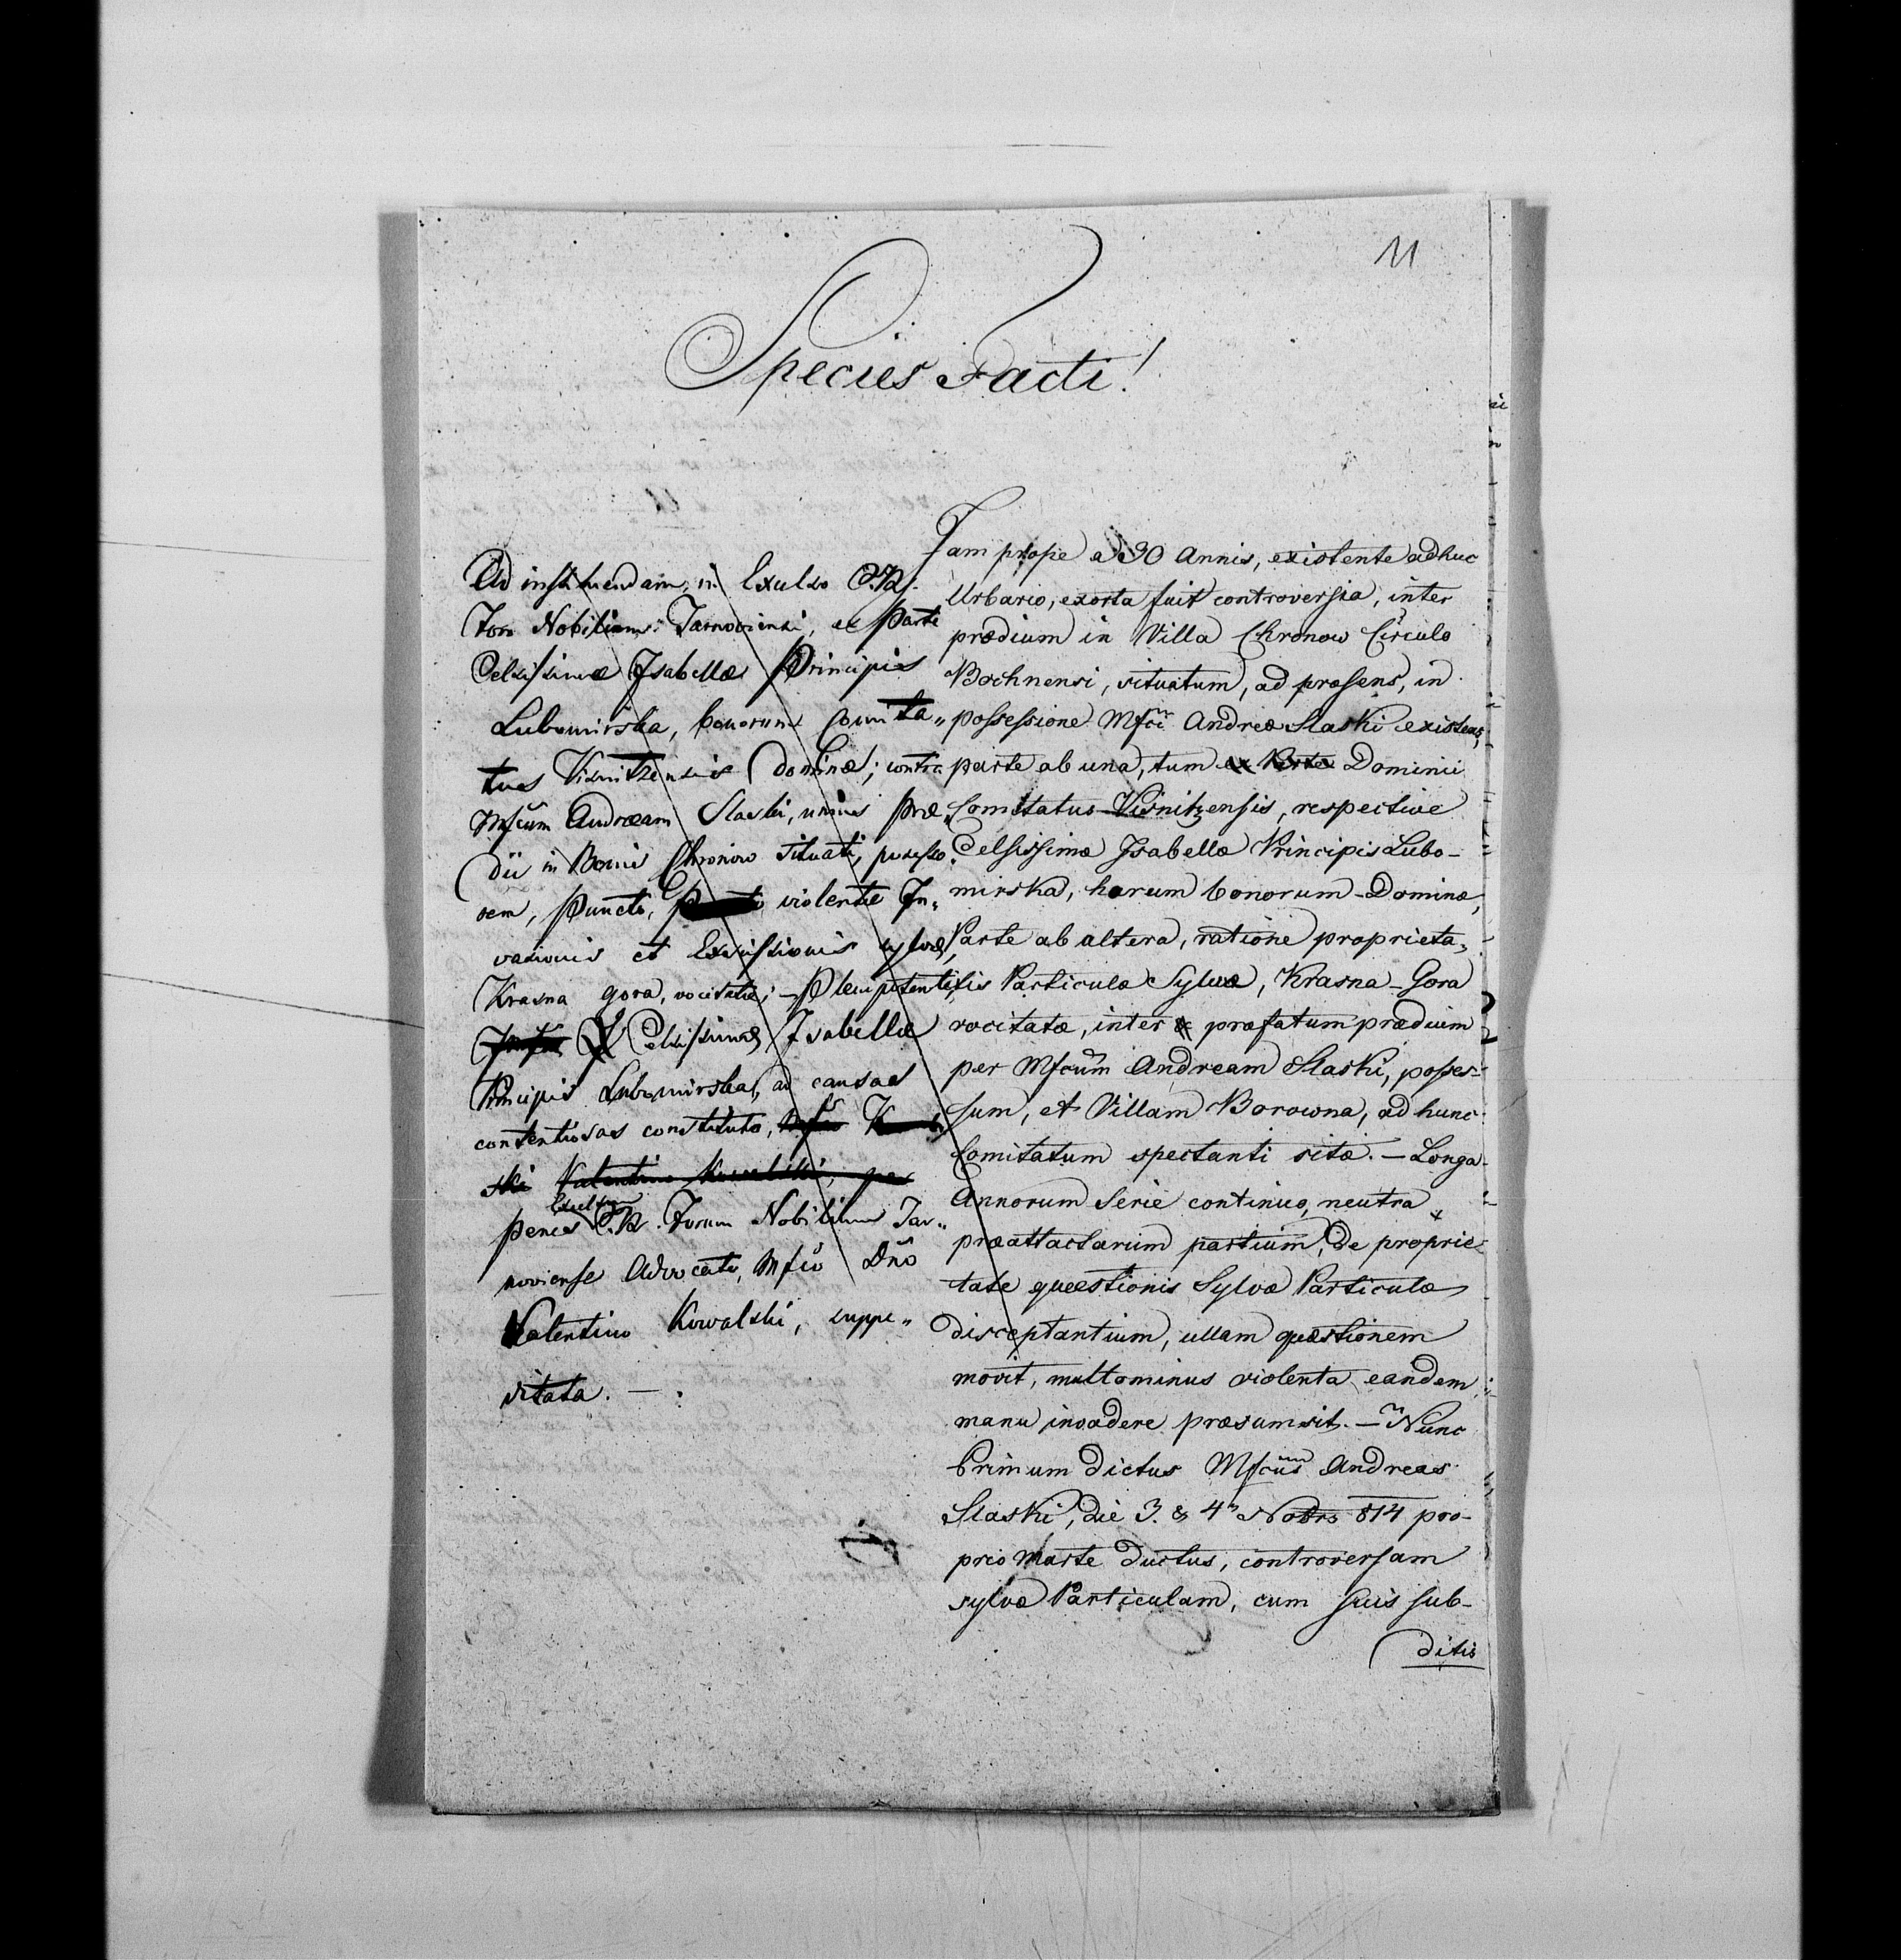 11
Species Facti!
Ad instituendam, in Excelso C. R.
Foro Nobilium Tarnoviensi, ex Parte
Celsissimæ Isabellæ Principis
Lubomirska, bonorum Comita„
tus Visnitzensis Dominæ; contra
Mfcum Andream Slaski, unius præ„
dii in Bonis Chronow situati, possesso„
rem, Puncto, violentæ In„
vasionis et Excissionis sylvæ,
Krasna gora, vocitatæ; – Plenipotenti
Celsissimæ Isabellæ
Principis Lubomirska, ad causas
contentiosas constituto,
ski Valentino Kowalski, per
Excelsum
penes C. R. Forum Nobilium Tar„
noviense Advocato, Mfco Dno
Valentino Kowalski, suppe„
ditata. — :
Jam prope a 30 Annis, existente adhuc
Urbario, exorta fuit controversia, inter
prædium in Villa Chronow Circulo
Bochnensi, situatum, ad præsens, in
possessione Mfci Andreæ Slaski existens,
parte ab una, tum ex Parte Dominii
Comitatus Visnitzensis, respective
Celsissimæ Isabellæ Principis Lubo-
mirska, harum bonorum Dominæ,
Parte ab altera, ratione proprieta„
tis Particulæ Sylvæ, Krasna-Gora
vocitatæ, inter præfatum prædium
per Mfcum Andream Slaski, posses-
sum, et Villam Borowna, ad hunc
Comitatum spectanti sitæ. – Longa
Annorum Serie continuo, neutra
præattactarum partium, de proprie-
tate quæstionis Sylvæ Particulæ
disceptantium, ullam quæstionem
movit, multominus violenta eandem
manu invadere præsumsit. – Nunc
Primum dictus Mfcus Andreas
Slaski, die 3. & 4ª Nobris 814 pro-
prio Marte ductus, controversam
sylvæ Particulam, cum suis sub-
ditis